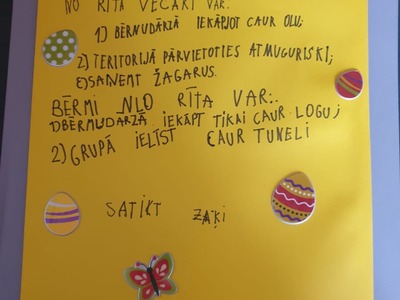 NO RĪTA VECĀKI VAR:
1) BĒRNUDĀRZĀ IEKĀPJOT CAUR OLU;
2) TERITORIJĀ PĀRVIETOTIES ATMUGURISKI;
3) SAŅEMT ŽAGARUS.
BĒRMI NLO RĪTA VAR:.
1) BĒRMUDARZĀ IEKĀPT TIKAI CAUR LOGU;
2) GRUPĀ IELĪST CAUR TUNELI
SATIKT ZAĶI